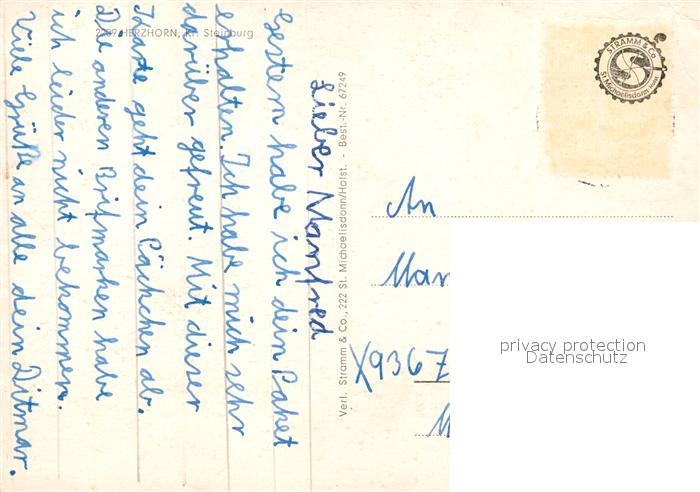 2209 HERZHORN, Kr. Steinburg
Lieber Manfred
Gestern habe ich dein Paket
erhalten. Ich habe mich sehr
darüber gefreut. Mit dieser
Karte geht dein Päckchen ab.
Die anderen Brifmarken habe
ich leider nicht bekommen.
Viele Grüße an alle dein Ditmar.
Verl. Stramm & Co., 222 St. Michaelisdonn/Holst. - Best.-Nr. 67249
STRAMM & Co.
St. Michaelisdonn
An
Man
X9367
M
privacy protection
Datenschutz